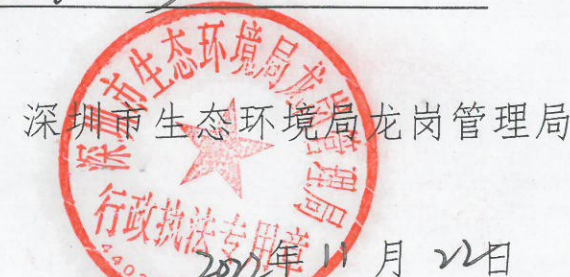 深圳市生态环境局龙岗管理局
深圳市生态环境局龙岗管理局
行政执法专用章
2022年11月22日